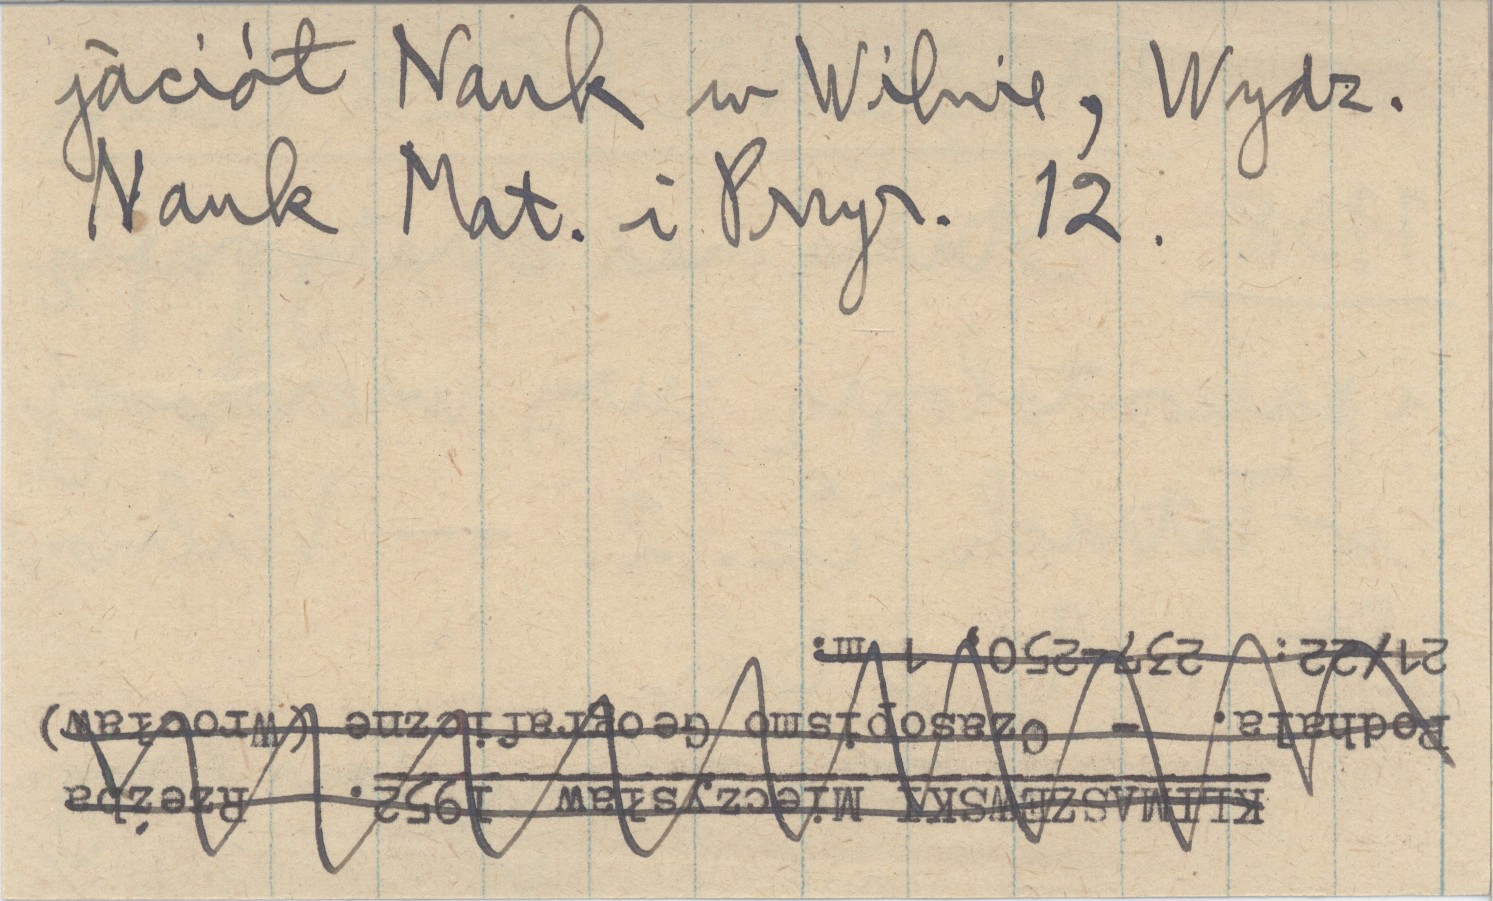 jaciół Nauk w Wilnie, Wydz.
Nauk Mat. i Przyr. 12.
KLIMASZEWSKI Mieczysław 1952. Rzeźba
Podhala. - Czasopismo Geograficzne (Wrocław)
21/22: 237-250, 1 m.